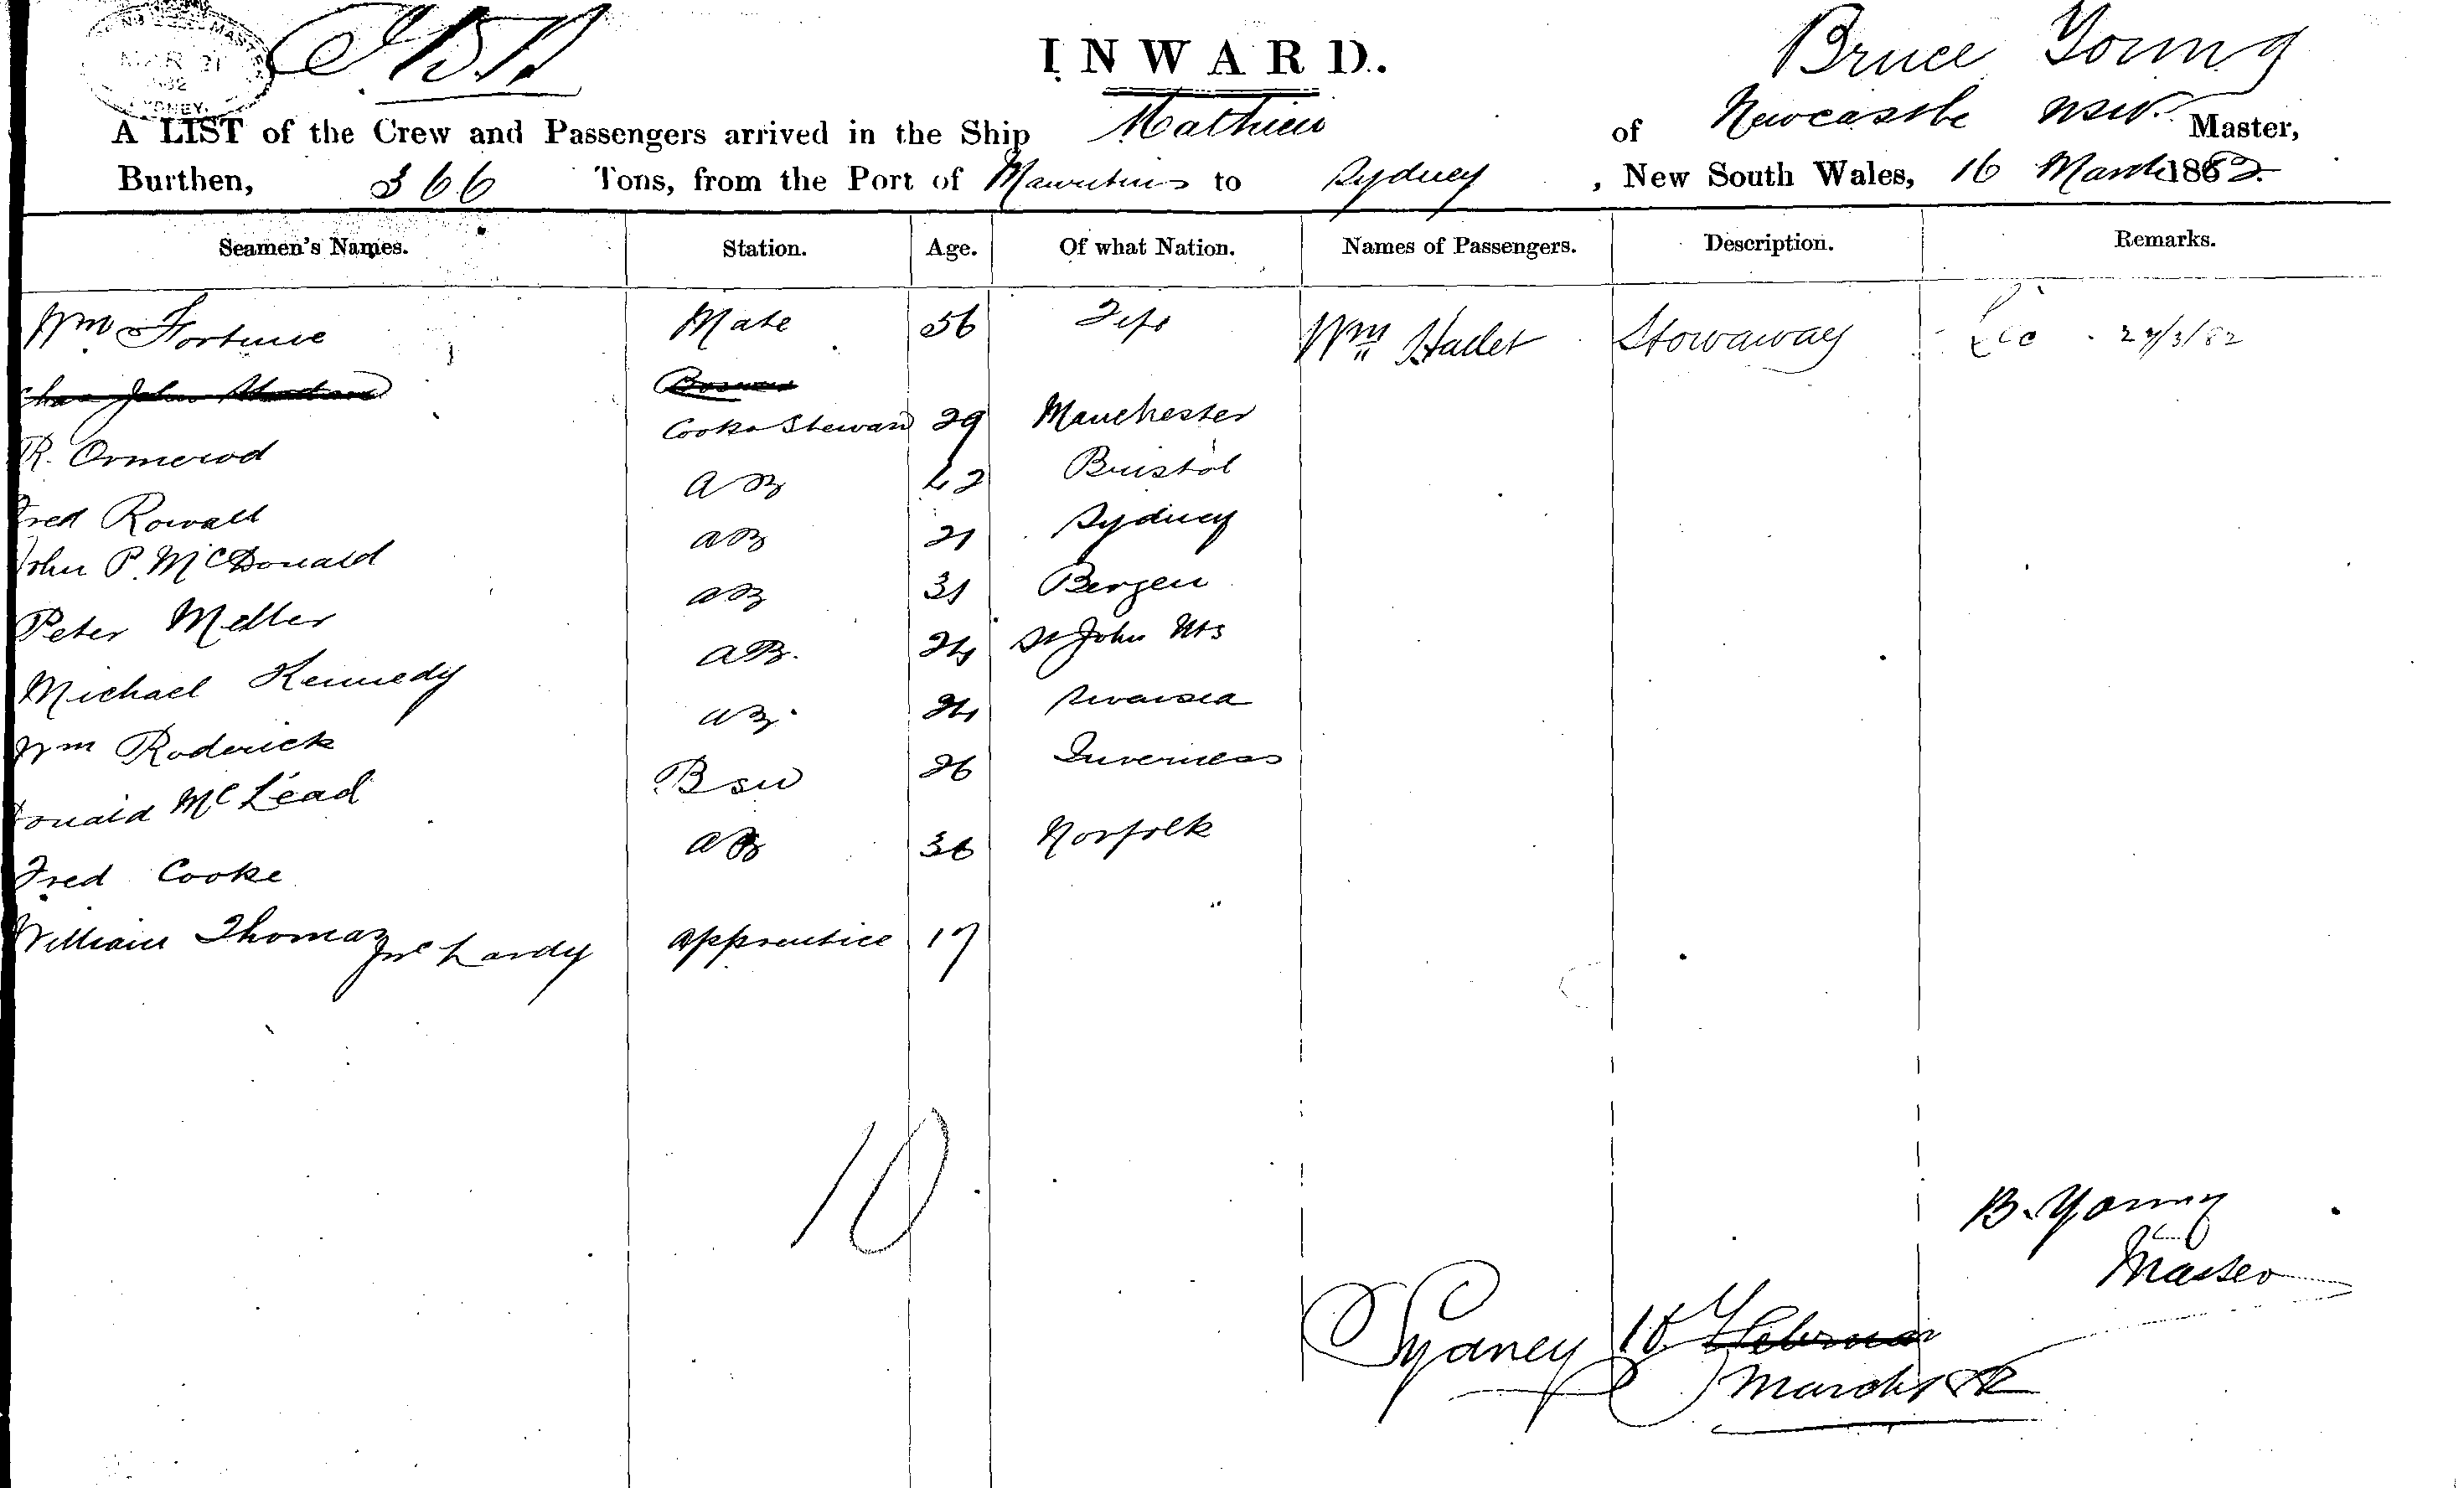 MAR 21
SYDNEY.
INWARD.
Bruce Young
A LIST of the Crew and Passengers arrived in the Ship Mathieu of Newcastle NSW. Master,
Burthen, 366 Tons, from the Port of Mauritius to Sydney, New South Wales, 16 March 1882.
Seamen's Names. Station. Age. Of what Nation. Names of Passengers. Description. Remarks.
Wm Fortune Mate 56 Fife Wm Hallet Stowaway 27/3/82
John
R. Ormerod Cook & Steward 29 Manchester
Fred Rowall AB 42 Bristol
John P. McDonald AB 21 Sydney
Peter Meller AB 31 Bergen
Michael Kennedy AB. 24 St John
Wm Roderick AB. 24 Swansea
Donald McLead Bsn 26 Inverness
Fred Cooke AB 36 Norfolk
William Thomas McHardy Apprentice 17
10
B. Young
Master
Sydney 16 Februar
March 1882